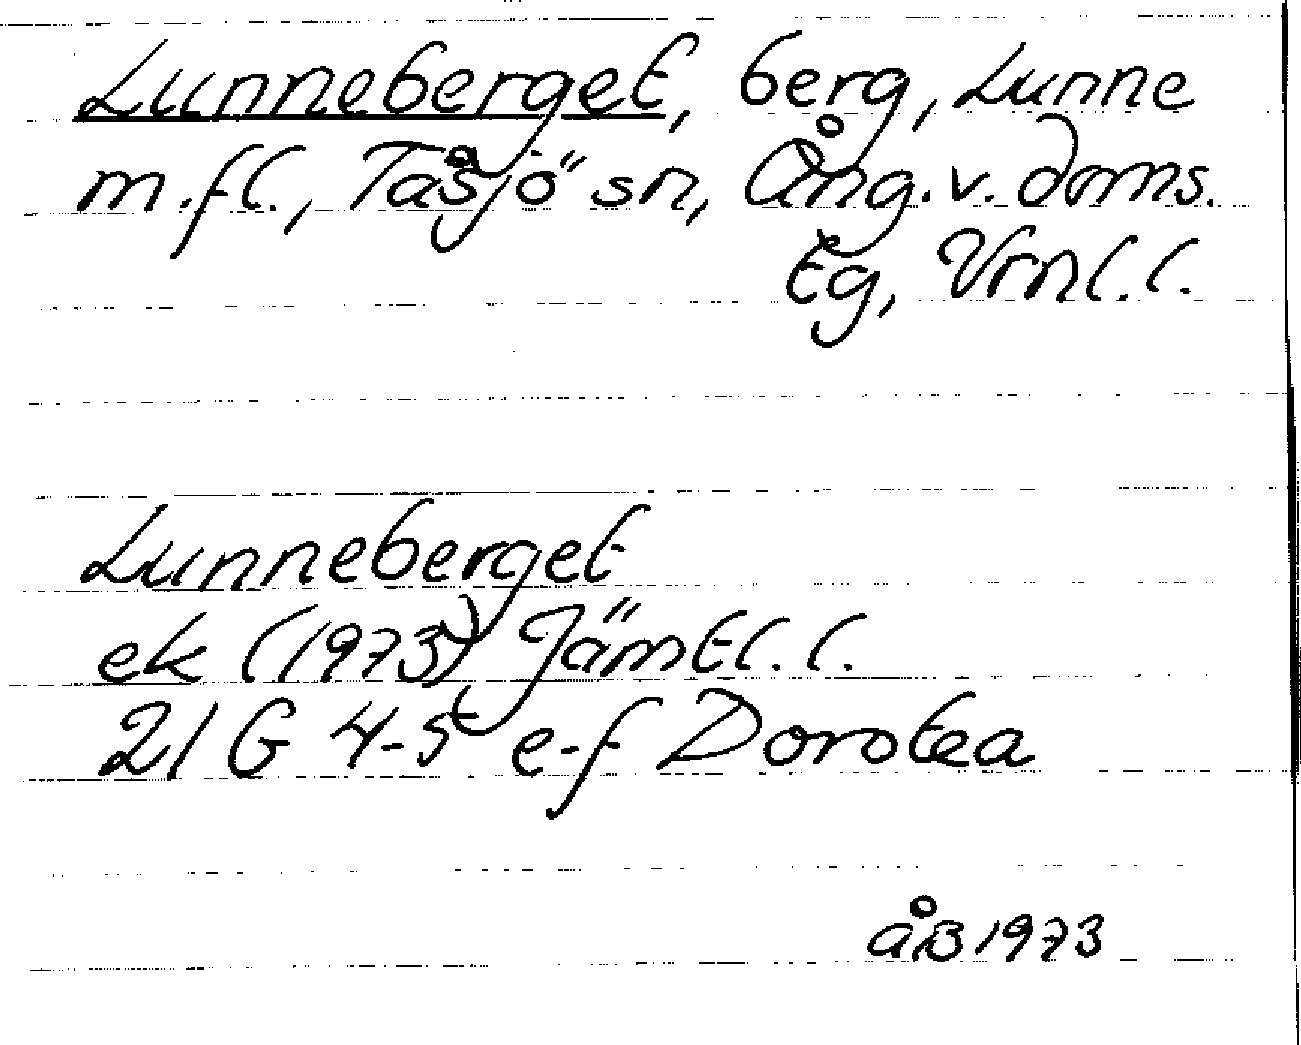 Lunneberget, berg, Lunne
m.fl., Tåsjö sn, Ång.v.doms.
tg, Vrnl.l.
Lunneberget
ek (1973) Jämtl.l.
21 G 4-5 e-f Dorotea
åB 1973